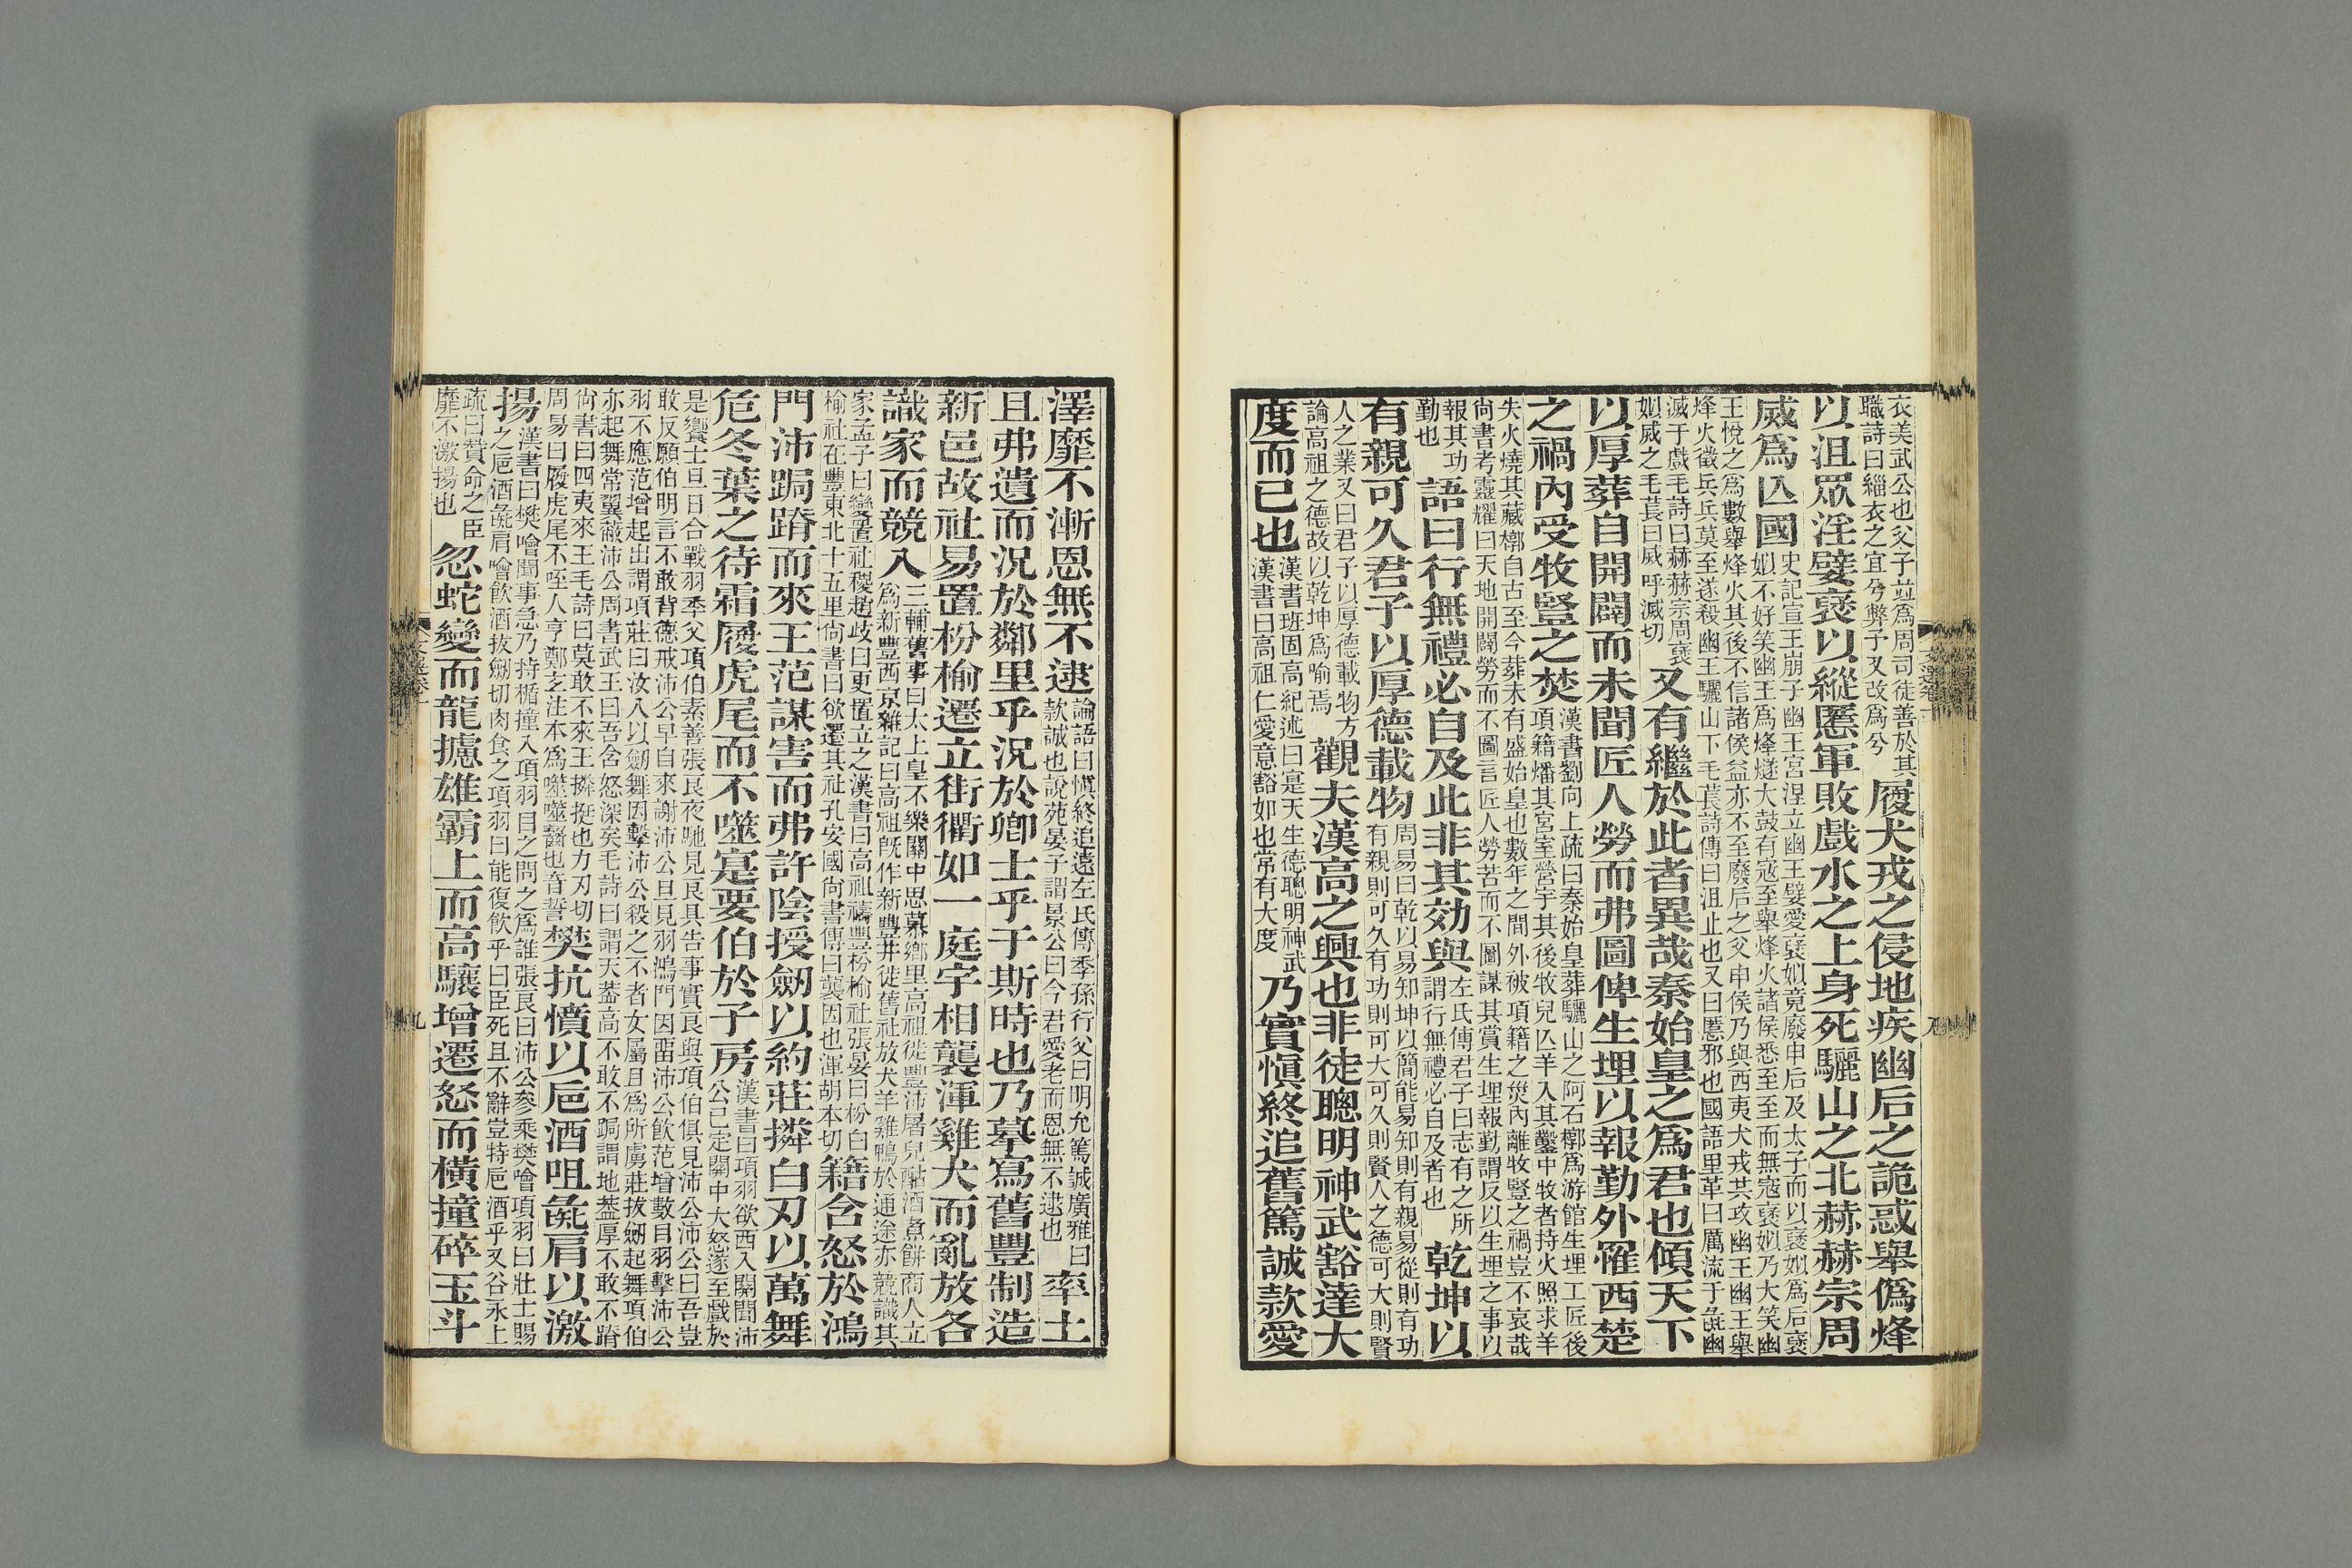 衣美武公也父子並爲周司徒善於其
職詩曰緇衣之宜兮弊予又改爲兮
履犬戎之侵地疾幽后之詭惑舉僞烽
以沮眾淫嬖褒以縱慝軍敗戲水之上身死驪山之北赫赫宗周
威爲亾國
史記宣王崩子幽王宮湼立幽王嬖愛褒姒竟廢申后及太子而以褒姒爲后褒
姒不好笑幽王爲烽燧大鼓有寇至舉烽火諸侯悉至至而無寇褒姒乃大笑幽
王悅之爲數舉烽火其後不信諸侯益亦不至廢后之父申侯乃與西夷犬戎共攻幽王幽王舉
烽火徵兵兵莫至遂殺幽王驪山下毛萇詩傳曰沮止也又曰慝邪也國語里革曰厲流于彘幽
滅于戲毛詩曰赫赫宗周褒
姒威之毛萇曰威呼滅切
又有繼於此者異哉秦始皇之爲君也傾天下
以厚葬自開闢而未聞匠人勞而弗圖俾生埋以報勤外罹西楚
之禍內受牧豎之焚
漢書劉向上疏曰秦始皇葬驪山之阿石槨爲游館生埋工匠後
項籍燔其宮室營宇其後牧兒亾羊入其鑿中牧者持火照求羊
失火燒其藏槨自古至今葬未有盛始皇也數年之間外被項籍之災內離牧豎之禍豈不哀哉
尙書考靈耀曰天地開闢勞而不圖言匠人勞苦而不圖謀其賞生埋報勤謂反以生埋之事以
報其功
勤也
語曰行無禮必自及此非其効與
左氏傳君子曰志有之所
謂行無禮必自及者也
乾坤以
有親可久君子以厚德載物
周易曰乾以易知坤以簡能易知則有親易從則有功
有親則可久有功則可大可久則賢人之德可大則賢
人之業又曰君子以厚德載物方
論高祖之德故以乾坤爲喻焉
觀夫漢高之興也非徒聰明神武豁達大
度而已也
漢書班固高紀述曰寔天生德聰明神武
漢書曰高祖仁愛意豁如也常有大度
乃實愼終追舊篤誠款愛
澤靡不漸恩無不逮
論語曰愼終追遠左氏傳季孫行父曰明允篤誠廣雅曰
款誠也說苑晏子謂景公曰今君愛老而恩無不逮也
率土
且弗遺而況於鄰里乎況於卿士乎于斯時也乃摹寫舊豐制造
新邑故社易置枌榆遷立街衢如一庭宇相襲渾雞犬而亂放各
識家而競入
三輔舊事曰太上皇不樂關中思慕鄉里高祖徙豐沛屠兒酤酒煮餠商人立
爲新豐西京雜記曰高祖旣作新豐幷徙舊社放犬羊雞鴨於通途亦競識其
家孟子曰變置社稷趙歧曰更置立之漢書曰高祖禱豐枌榆社張晏曰枌白
榆社在豐東北十五里尙書曰欲遷其社孔安國尙書傳曰襲因也渾胡本切
籍含怒於鴻
門沛跼蹐而來王范謀害而弗許陰授劒以約莊撛白刃以萬舞
危冬葉之待霜履虎尾而不噬寔要伯於子房
漢書曰項羽欲西入關聞沛
公已定關中大怒遂至戲於
是饗士旦日合戰羽季父項伯素善張良夜馳見良具告事實良與項伯俱見沛公沛公曰吾豈
敢反願伯明言不敢背德戒沛公早自來謝沛公旦見羽鴻門因畱沛公飲范增數目羽擊沛公
羽不應范增起出謂項莊曰汝入以劒舞因擊沛公殺之不者女屬且爲所虜莊拔劒起舞項伯
亦起舞常翼蔽沛公周書武王曰吾含怒深矣毛詩曰謂天蓋高不敢不跼謂地蓋厚不敢不蹐
尙書曰四夷來王毛詩曰莫敢不來王撛挺也力刃切
周易曰履虎尾不咥人亨鄭玄注本爲噬噬齧也音誓
樊抗憤以巵酒咀彘肩以激
揚
漢書曰樊噲聞事急乃持楯撞入項羽目之問之爲誰張良曰沛公參乘樊噲項羽曰壯士賜
之巵酒彘肩噲飲酒拔劒切肉食之項羽曰能復飲乎曰臣死且不辭豈特巵酒乎又谷永上
疏曰贊命之臣
靡不激揚也
忽蛇變而龍攄雄霸上而高驤增遷怒而橫撞碎玉斗
九